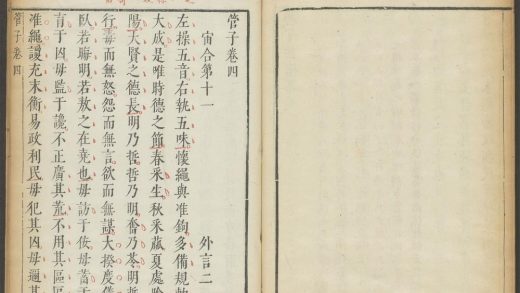 管子卷四
宙合第十一　外言二
左操五音右執五味懷繩與准鉤多備規軸
大成是唯時德之節春采生秋采蓏夏處陰
陽大賢之德長明乃哲哲乃明奮乃苓明哲
行毒而無怒怨而無言欲而無謀大揆度儀
臥若晦明若敖之在堯也毋訪于佞毋蓄于
育于凶毋監于讒不正廣其荒不用其區區
准繩謾充末衡易政利民毋犯其凶毋邇其
管子卷四